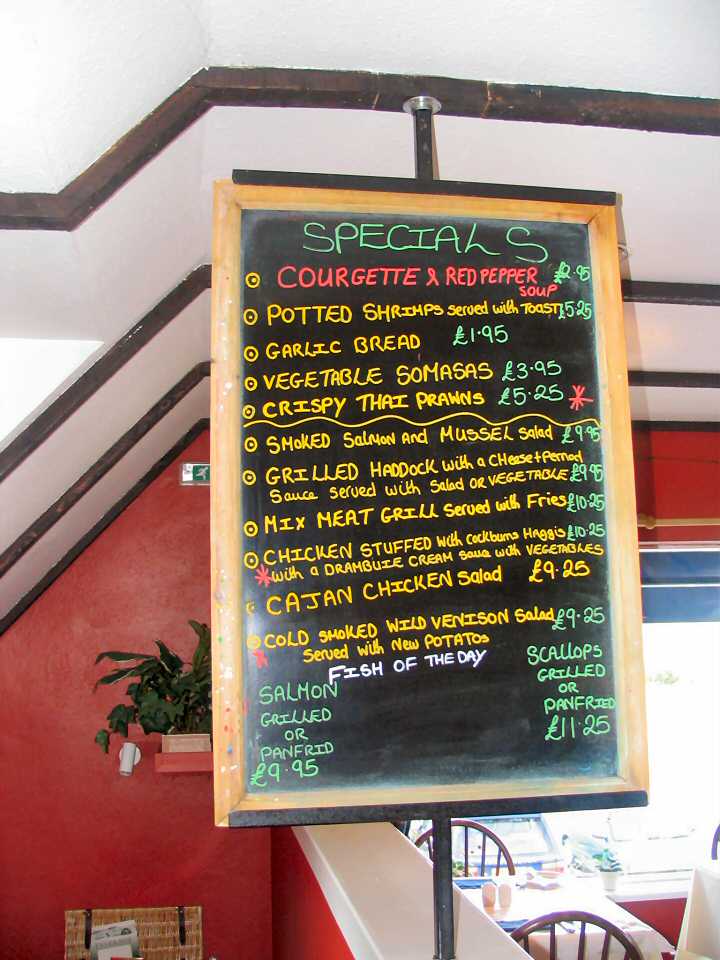 SPECIALS
COURGETTE & RED PEPPER £2.95
SOUP
POTTED SHRIMPS served with TOAST £5.25
GARLIC BREAD £1.95
VEGETABLE SOMASAS £3.95
CRISPY THAI PRAWNS £5.25 *
SMOKED Salmon and MUSSEL Salad £9.95
GRILLED HADDOCK with a CHeese+Pernod
Sauce served with Salad OR VEGETABLE £9.95
MIX MEAT GRILL served with Fries £10.25
CHICKEN STUFFED with cockburns Haggis £10.25
* with a DRAMBUIE CREAM sauce with VEGETABLES
CAJAN CHICKEN Salad £9.25
COLD SMOKED WILD VENISON Salad £9.25
* Served with New POTATOs
FISH OF THE DAY
SALMON
GRILLED
OR
PANFRID
£9.95
SCALLOPS
GRILLED
OR
PANFRIED
£11.25